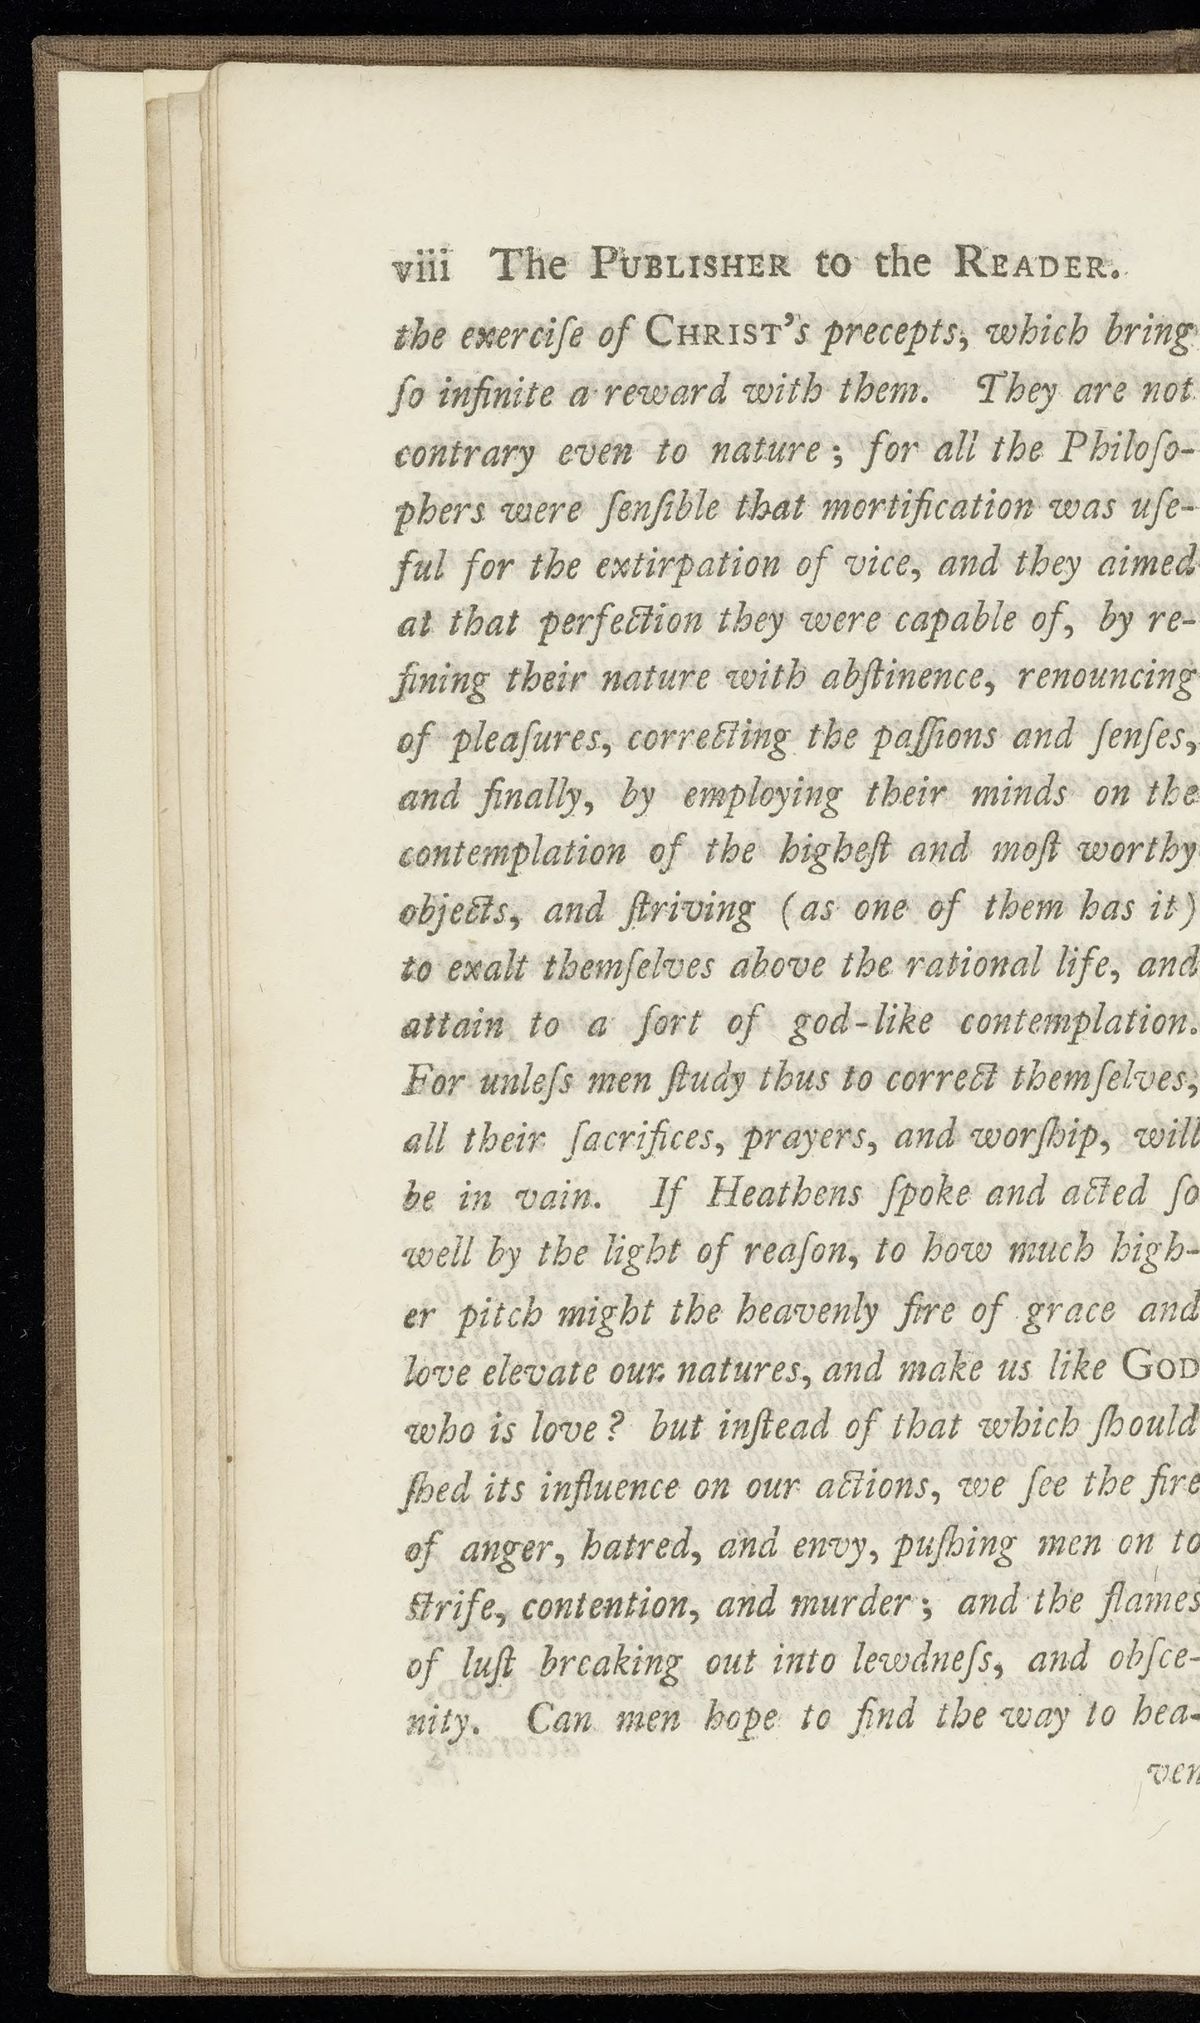 viii The PUBLISHER to the READER.
the exerciſe of CHRIST's precepts, which bring
ſo infinite a reward with them. They are not
contrary even to nature; for all the Philoſo-
phers were ſenſible that mortification was uſe-
ful for the extirpation of vice, and they aimed
at that perfection they were capable of, by re-
fining their nature with abſtinence, renouncing
of pleaſures, correcting the paſſions and ſenſes,
and finally, by employing their minds on the
contemplation of the higheſt and moſt worthy
objects, and ſtriving (as one of them has it)
to exalt themſelves above the rational life, and
attain to a ſort of god-like contemplation.
For unleſs men ſtudy thus to correct themſelves,
all their ſacrifices, prayers, and worſhip, will
be in vain. If Heathens ſpoke and acted ſo
well by the light of reaſon, to how much high-
er pitch might the heavenly fire of grace and
love elevate our natures, and make us like GOD
who is love? but inſtead of that which ſhould
ſhed its influence on our actions, we ſee the fire
of anger, hatred, and envy, puſhing men on to
ſtrife, contention, and murder; and the flames
of luſt breaking out into lewdneſs, and obſce-
nity. Can men hope to find the way to hea-
ven